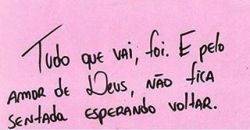 Tudo que vai, foi. E pelo
amor de Deus, não fica
sentada esperando voltar.